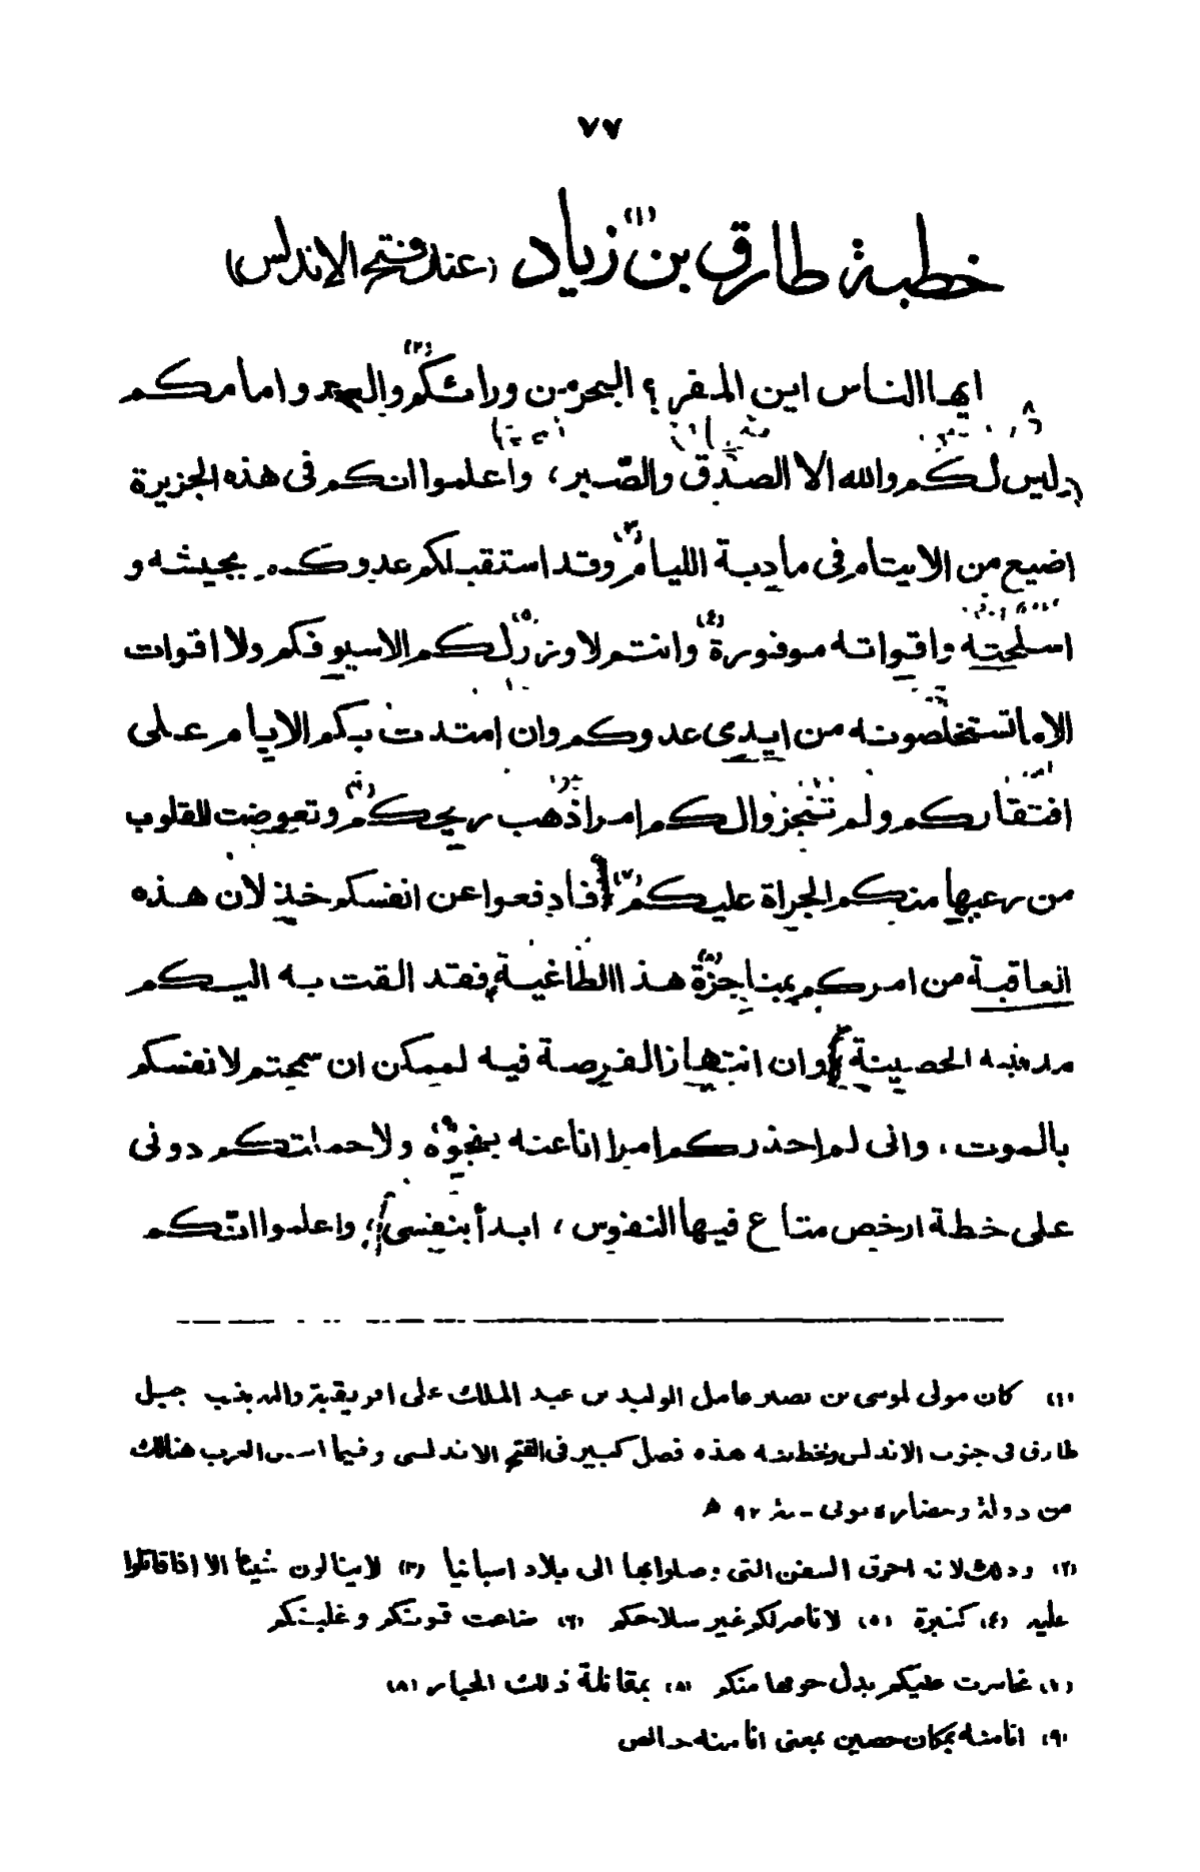 ٧٧
خطبة طارق بن زياد (١) (عند فتح الاندلس)
ايها الناس اين المفر ؟ البحر من ورائكم (٢) والعدو امامكم
وليس لكم والله الا الصدق والصبر، واعلموا انكم فى هذه الجزيرة
اضيع من الايتام فى مادبة الليام (٣) وقد استقبلكم عدوكم بجيشه و
اسلحته واقواته موفورة (٤) وانتم لا وزر (٥) لكم الا سيوفكم ولا اقوات
الا ما تستخلصونه من ايدى عدوكم وان امتدت بكم الايام على
افتقاركم ولم تنجزوا لكم امرا ذهب ريحكم (٦) وتعوضت القلوب
من رعبها منكم الجراة عليكم (٧) فادفعوا عن انفسكم خذلان هذه
العاقبة من امركم بمناجزة (٨) هذا الطاغية فقد القت به اليكم
مدينته الحصينة وان انتهاز الفرصة فيه لممكن ان سمحتم لانفسكم
بالموت، وانى لم احذركم امرا انا عنه بنجوة (٩) ولا حملتكم دونى
على خطة ارخص متاع فيها النفوس، ابدأ بنفسى، واعلموا انكم
(١) كان مولى لموسى بن نصير عامل الوليد بن عبد الملك على افريقية واليه ينسب جبل
طارق فى جنوب الاندلس ولخطبته هذه فصل كبير فى الفتح الاندلسى وفيما اسس العرب هنالك
من دولة وحضارة توفى سنة ٩٢ ه
(٢) وذلك لانه احرق السفن التى وصلوا بها الى بلاد اسبانيا (٣) لا ينالون شيئا الا اذا قاتلوا
عليه (٤) كثيرة (٥) لا ناصر لكم غير سلاحكم (٦) ضاعت قوتكم وغلبتكم
(٧) تجاسرت عليكم بدل خوفها منكم (٨) بمقاتلة ذلك الجبار (٨)
(٩) انا منه بمكان حصين بمعنى انا منه خالص